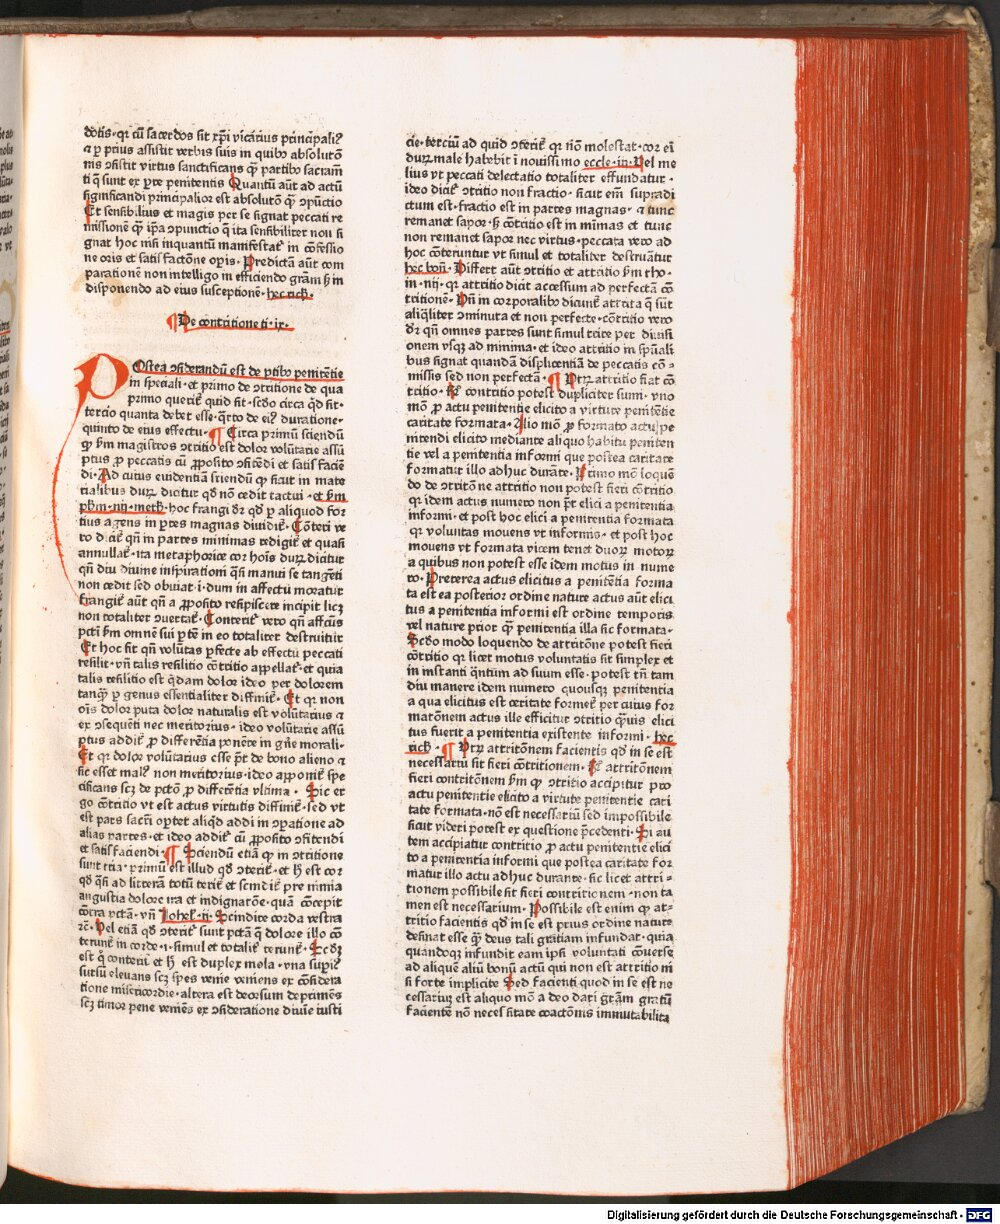 dotis·qꝛ cū sacerdos sit xp̄i vicarius principaliꝰ
⁊ ꝑ prius assistit verbis suis in quibꝰ absolutō
nis ↄsistit virtus sanctificans qͣꝫ partibꝰ sacram̄
ti q̄ sunt ex ꝑte penitentis Quantū aūt ad actū
significandi principalior est absolutō qͣꝫ ↄpunctio
Et sensibilius et magis per se signat peccati re
missionē qͣꝫ ip̄a ↄpunctio q̄ ita sensibiliter non si
gnat hoc nisi inquantū manifestaṫ in cōfessio
ne oris et satisfactōne opis· Predictā aūt com
parationē non intelligo in efficiendo grām ꝫ in
disponendo ad eius susceptionē·hec rich·
¶De contritione ti·ix·
POstea ↄsiderandū est de ꝑtibꝰ penitētie
in speciali·et primo de ↄtritione de qua
primo queriṫ quid sit·scd̓o circa qd̓ sit·
tercio quanta debet esse·qͣrto de eiꝰ duratione·
quinto de eius effectu·¶ Circa primū sciendū
ꝙ ẜm magistros ↄtritio est dolor volūtarie assū
ptus ꝓ peccatis cū ꝓposito ↄfitēdi et satisfaciē
di·Ad cuius euidentiā sciendū ꝙ sicut in mate
rialibus durꝫ dicitur qd̓ nō cedit tactui·et ẜm
phm·iiij·meth·hoc frangi d̓r qd̓ ꝑ aliquod for
tius agens in ꝑtes magnas diuidiṫ·Cōteri ve
ro diciṫ qn̄ in partes minimas redigiṫ et quasi
annullaṫ·ita metaphorice cor hoīs durꝫ dicitur
qn̄ diu diuine inspirationi qͣsi manui se tangēti
non cedit sed obuiat·i·dum in affectu moratur
frangiṫ aūt qn̄ a ꝓposito resipiscere incipit licꝫ
non totaliter ↄuertaṫ·Conteriṫ vero qn̄ affcūs
pctī ẜm omnē sui ꝑtē in eo totaliter destruitur
Et hoc fit qn̄ volūtas ꝑfecte ab effectu peccati
resilit·vn̄ talis resilitio cōtritio appellaṫ·et quia
talis resilitio est qͥdam dolor ideo per dolorem
tanqͣꝫ ꝑ genus essentialiter diffiniṫ·Et qꝛ non
oīs dolor puta dolor naturalis est volūtarius ⁊
ex ↄsequēti nec meritorius·ideo volūtarie assū
ptus addiṫ ꝓ differētia ponēre in gn̄e morali·
Et qꝛ dolor volūtarius esse pōt de bono alieno ⁊
sic esset malꝰ non meritorius·ideo apponiṫ spe
cificans scꝫ de pctō ꝓ differētia vltima· Sic er
go cōtritio vt est actus virtutis diffiniṫ·sed vt
est pars sacrī oportet aliqͥd addi in ↄpatione ad
alias partes·et ideo addiṫ cū ꝓposito ↄfitendi
et satisfaciendi·¶ Sciendū etiā ꝙ in ↄtritione
sunt tria·primū est illud qd̓ ↄteriṫ·et hͦ est cor
qd̓ qͣsi ad litterā totū teriṫ et scindiṫ pre nimia
angustia dolore ira et indignatōne·quā cōcepit
cōtra pctā·vn̄ Johel·ij·Scindite corda vestra
⁊c̄·Vel etiā qd̓ ↄteriṫ sunt pctā qͣꝫ dolore illo cō
terunṫ in corde·i·simul et totaliṫ terunṫ·Scd̓ꝫ
est qͦ conteriṫ et hͦ est duplex mola·vna supiꝰ
sursū eleuans scꝫ spes venie veniens ex cōsidera
tione misericordie·altera est deorsum deprimēs
scꝫ timor pene veniēs ex ↄsideratione diuīe iusti
cie·terciū ad quid ↄteriṫ qꝛ nō molestat·cor eī
durꝫ male habebit ī nouissimo eccle·iij·Vel me
lius vt peccati delectatio totaliter effundatur·
ideo diciṫ ↄtritio non fractio·sicut eīm supradi
ctum est·fractio est in partes magnas·⁊ tunc
remanet sapor·ꝫ cōtritio est in mimas et tunc
non remanet sapor nec virtus·peccata vero ad
hoc cōteruntur vt simul et totaliter destruātur
hec bon̄· Differt aūt ↄtritio et attritio ẜm tho·
in·iiij·qꝛ attritio dicit accessum ad perfectā cō
tritionē· Vn̄ in corporalibꝰ dicunṫ attrita q̄ sūt
aliqͣliter ↄminuta et non perfecte·cōtritio vero
d̓r qn̄ omnes partes sunt simul trite per diuisi
onem vsqꝫ ad minima·et ideo attritio in spūali
bus signat quandā displicentiā de peccatis cō⸗
missis sed non perfectā·¶ Vtrꝫ attritio fiat cō
tritio· Rͦ contritio potest dupliciter sumi·vno
mō ꝓ actu penitentie elicito a virtute penitētie
caritate formata·Alio mō ꝓ formato actu pe
nitendi elicito mediante aliquo habitu peniten
tie vel a penitentia informi que postea caritate
formatur illo adhuc durāte· Primo mō loquē
do de ↄtritōne attritio non potest fieri cōtritio
qꝛ idem actus numero non pōt elici a penitentia
informi·et post hoc elici a penitentia formata
qꝛ voluntas mouens vt informis·et post hoc
mouens vt formata vicem tenet duoꝝ motoꝝ
a quibus non potest esse idem motus in nume
ro·Preterea actus elicitus a penitētia forma
ta est ea posterior ordine nature actus aūt elici
tus a penitentia informi est ordine temporis
vel nature prior qͣꝫ penitentia illa sic formata·
Scd̓o modo loquendo de attritōne potest fieri
cōtritio qꝛ licet motus voluntatis sit simplex et
in instanti qͣntum ad suum esse·potest tn̄ tam
diu manere idem numero quousqꝫ penitentia
a qua elicitus est caritate formeṫ per cuius for
matōnem actus ille efficitur ↄtritio qͣuis elici
tus fuerit a penitentia existente informi· hec
rich·¶ Vtrꝫ attritōnem facientis qd̓ in se est
necessariū sit fieri cōtritionem· Rͦ attritōnem
fieri contritōnem ẜm ꝙ ↄtritio accipitur pro
actu penitentie elicito a virtute penitentie cari
tate formata·nō est necessariū sed impossibile
sicut videri potest ex questione p̄cedenti·Si au
tem accipiatur contritio ꝓ actu penitentie elici
to a penitentia informi que postea caritate for
matur illo actu adhuc durante·sic licet attri⸗
tionem possibile sit fieri contritionem·non ta
men est necessarium·Possibile est enim ꝙ at⸗
tritio facientis qd̓ in se est prius ordine nature
desinat esse qͣꝫ deus tali gratiam infundat·quia
quandoqꝫ infundit eam ipsi voluntati cōuerse
ad aliquē aliū bonū actū qui non est attritio ni
si forte implicite Sed facienti quod in se est ne
cessarius est aliquo mō a deo dari grām gratū
facientē nō necessitate coactōnis immutabilita
Digitalisierung gefördert durch die Deutsche Forschungsgemeinschaft · DFG